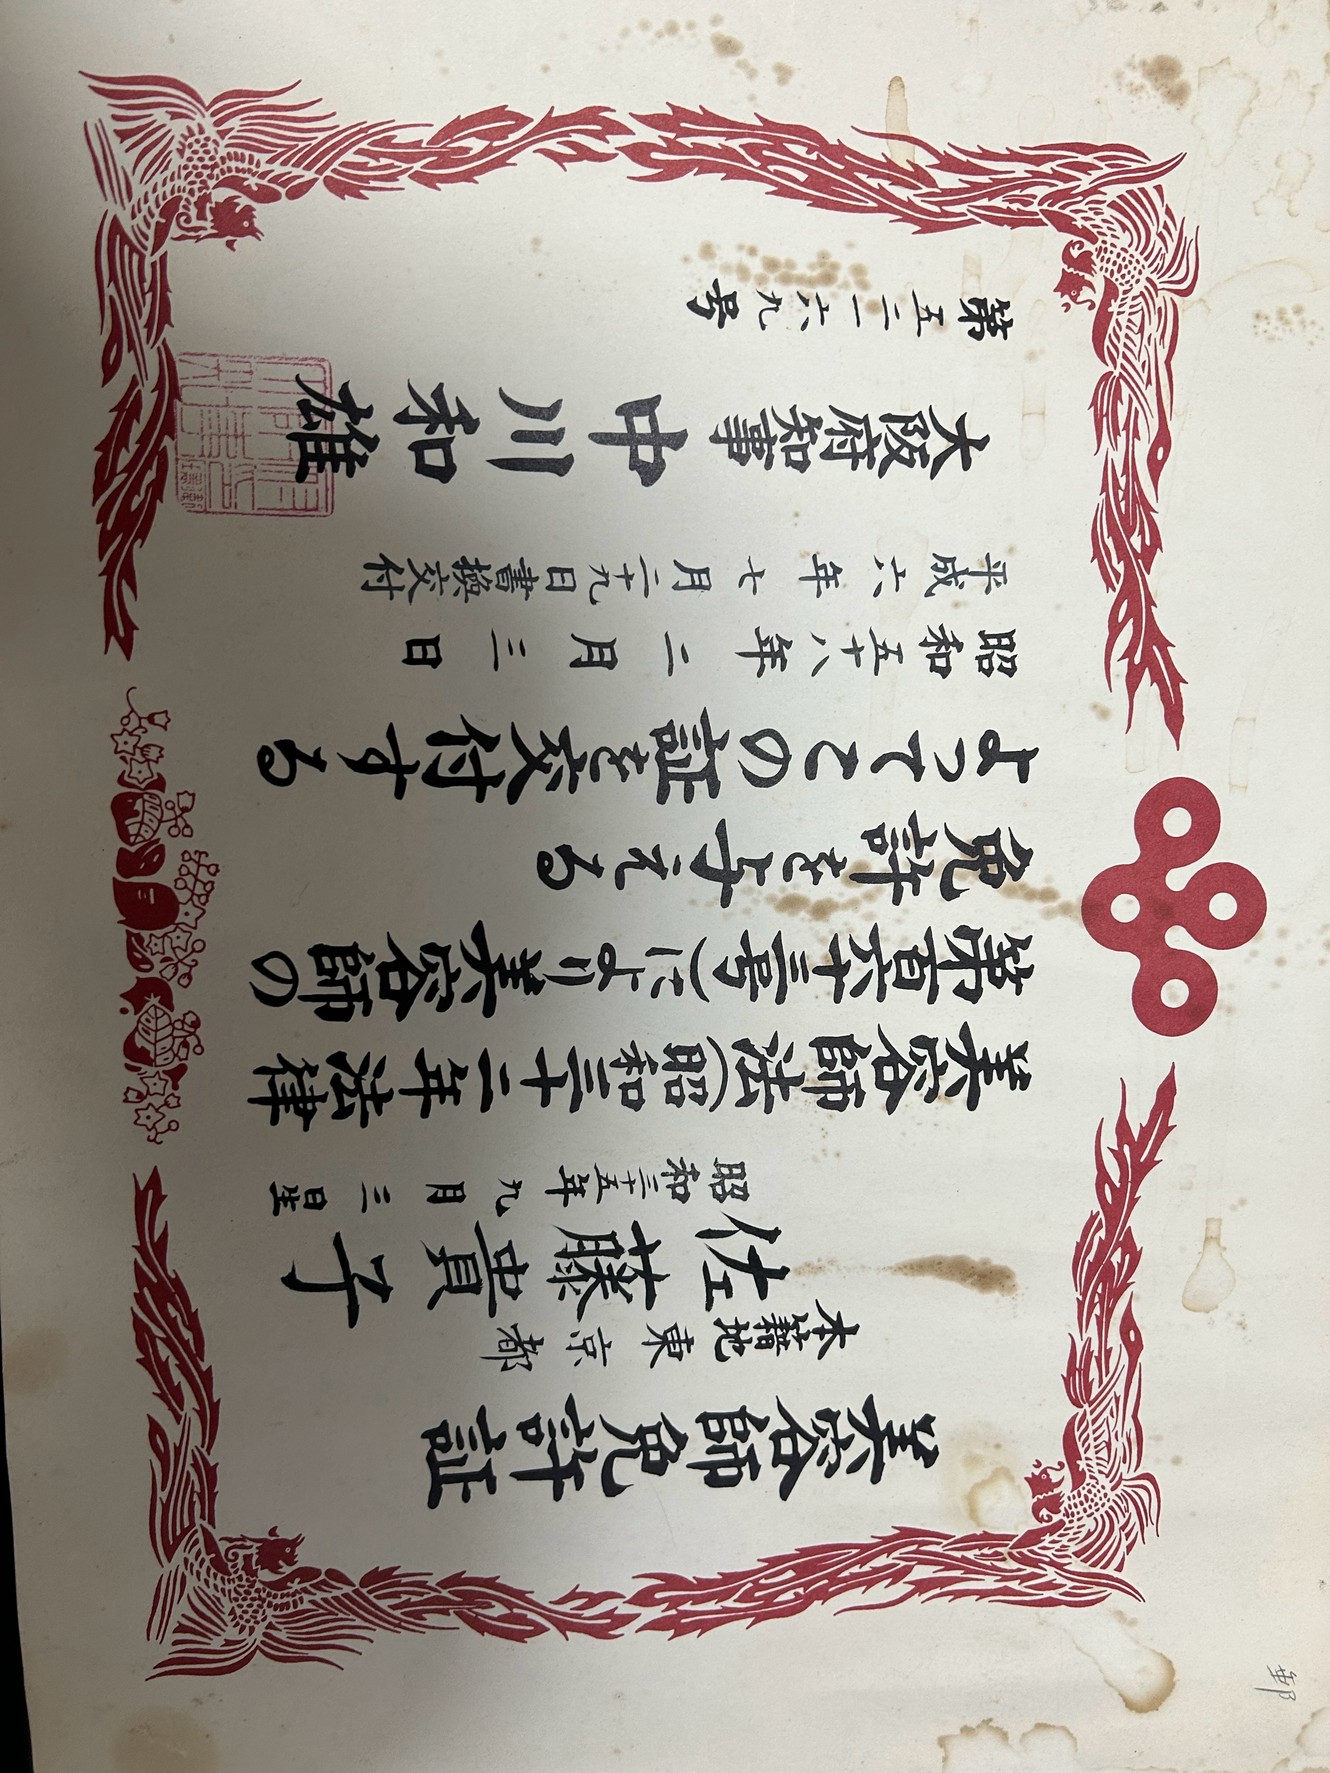 美容師免許証
本籍地東京都
佐藤貴子
昭和三十五年九月三日生
美容師法(昭和三十二年法律
第百六十三号)により美容師の
免許を与える
よってこの証を交付する
昭和五十八年二月三日
平成六年七月二十九日書換交付
大阪府知事中川和雄
第五二一六九号